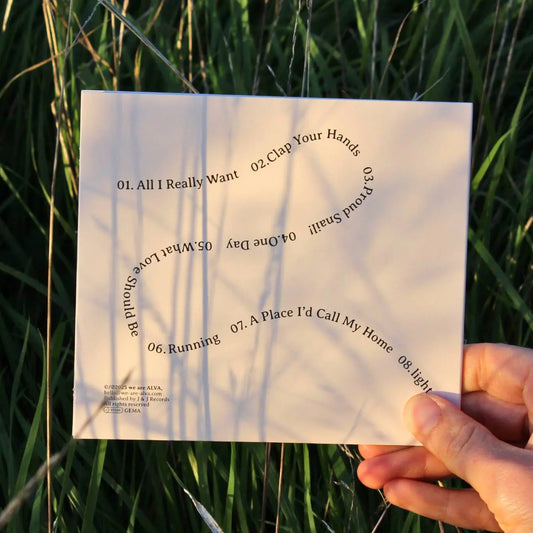 01. All I Really Want
02.Clap Your Hands
03.Proud Snail!!
04.One Day
05.What Love Should Be
06.Running
07. A Place I'd Call My Home
08.light
we are ALVA,
hello@we-are-alva.com
Published by J & J Records
All rights reserved
GEMA